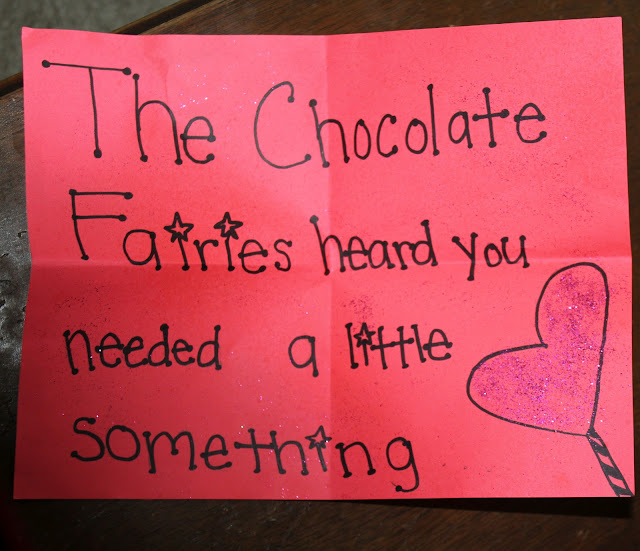 The Chocolate
Fairies heard you
needed a little
something